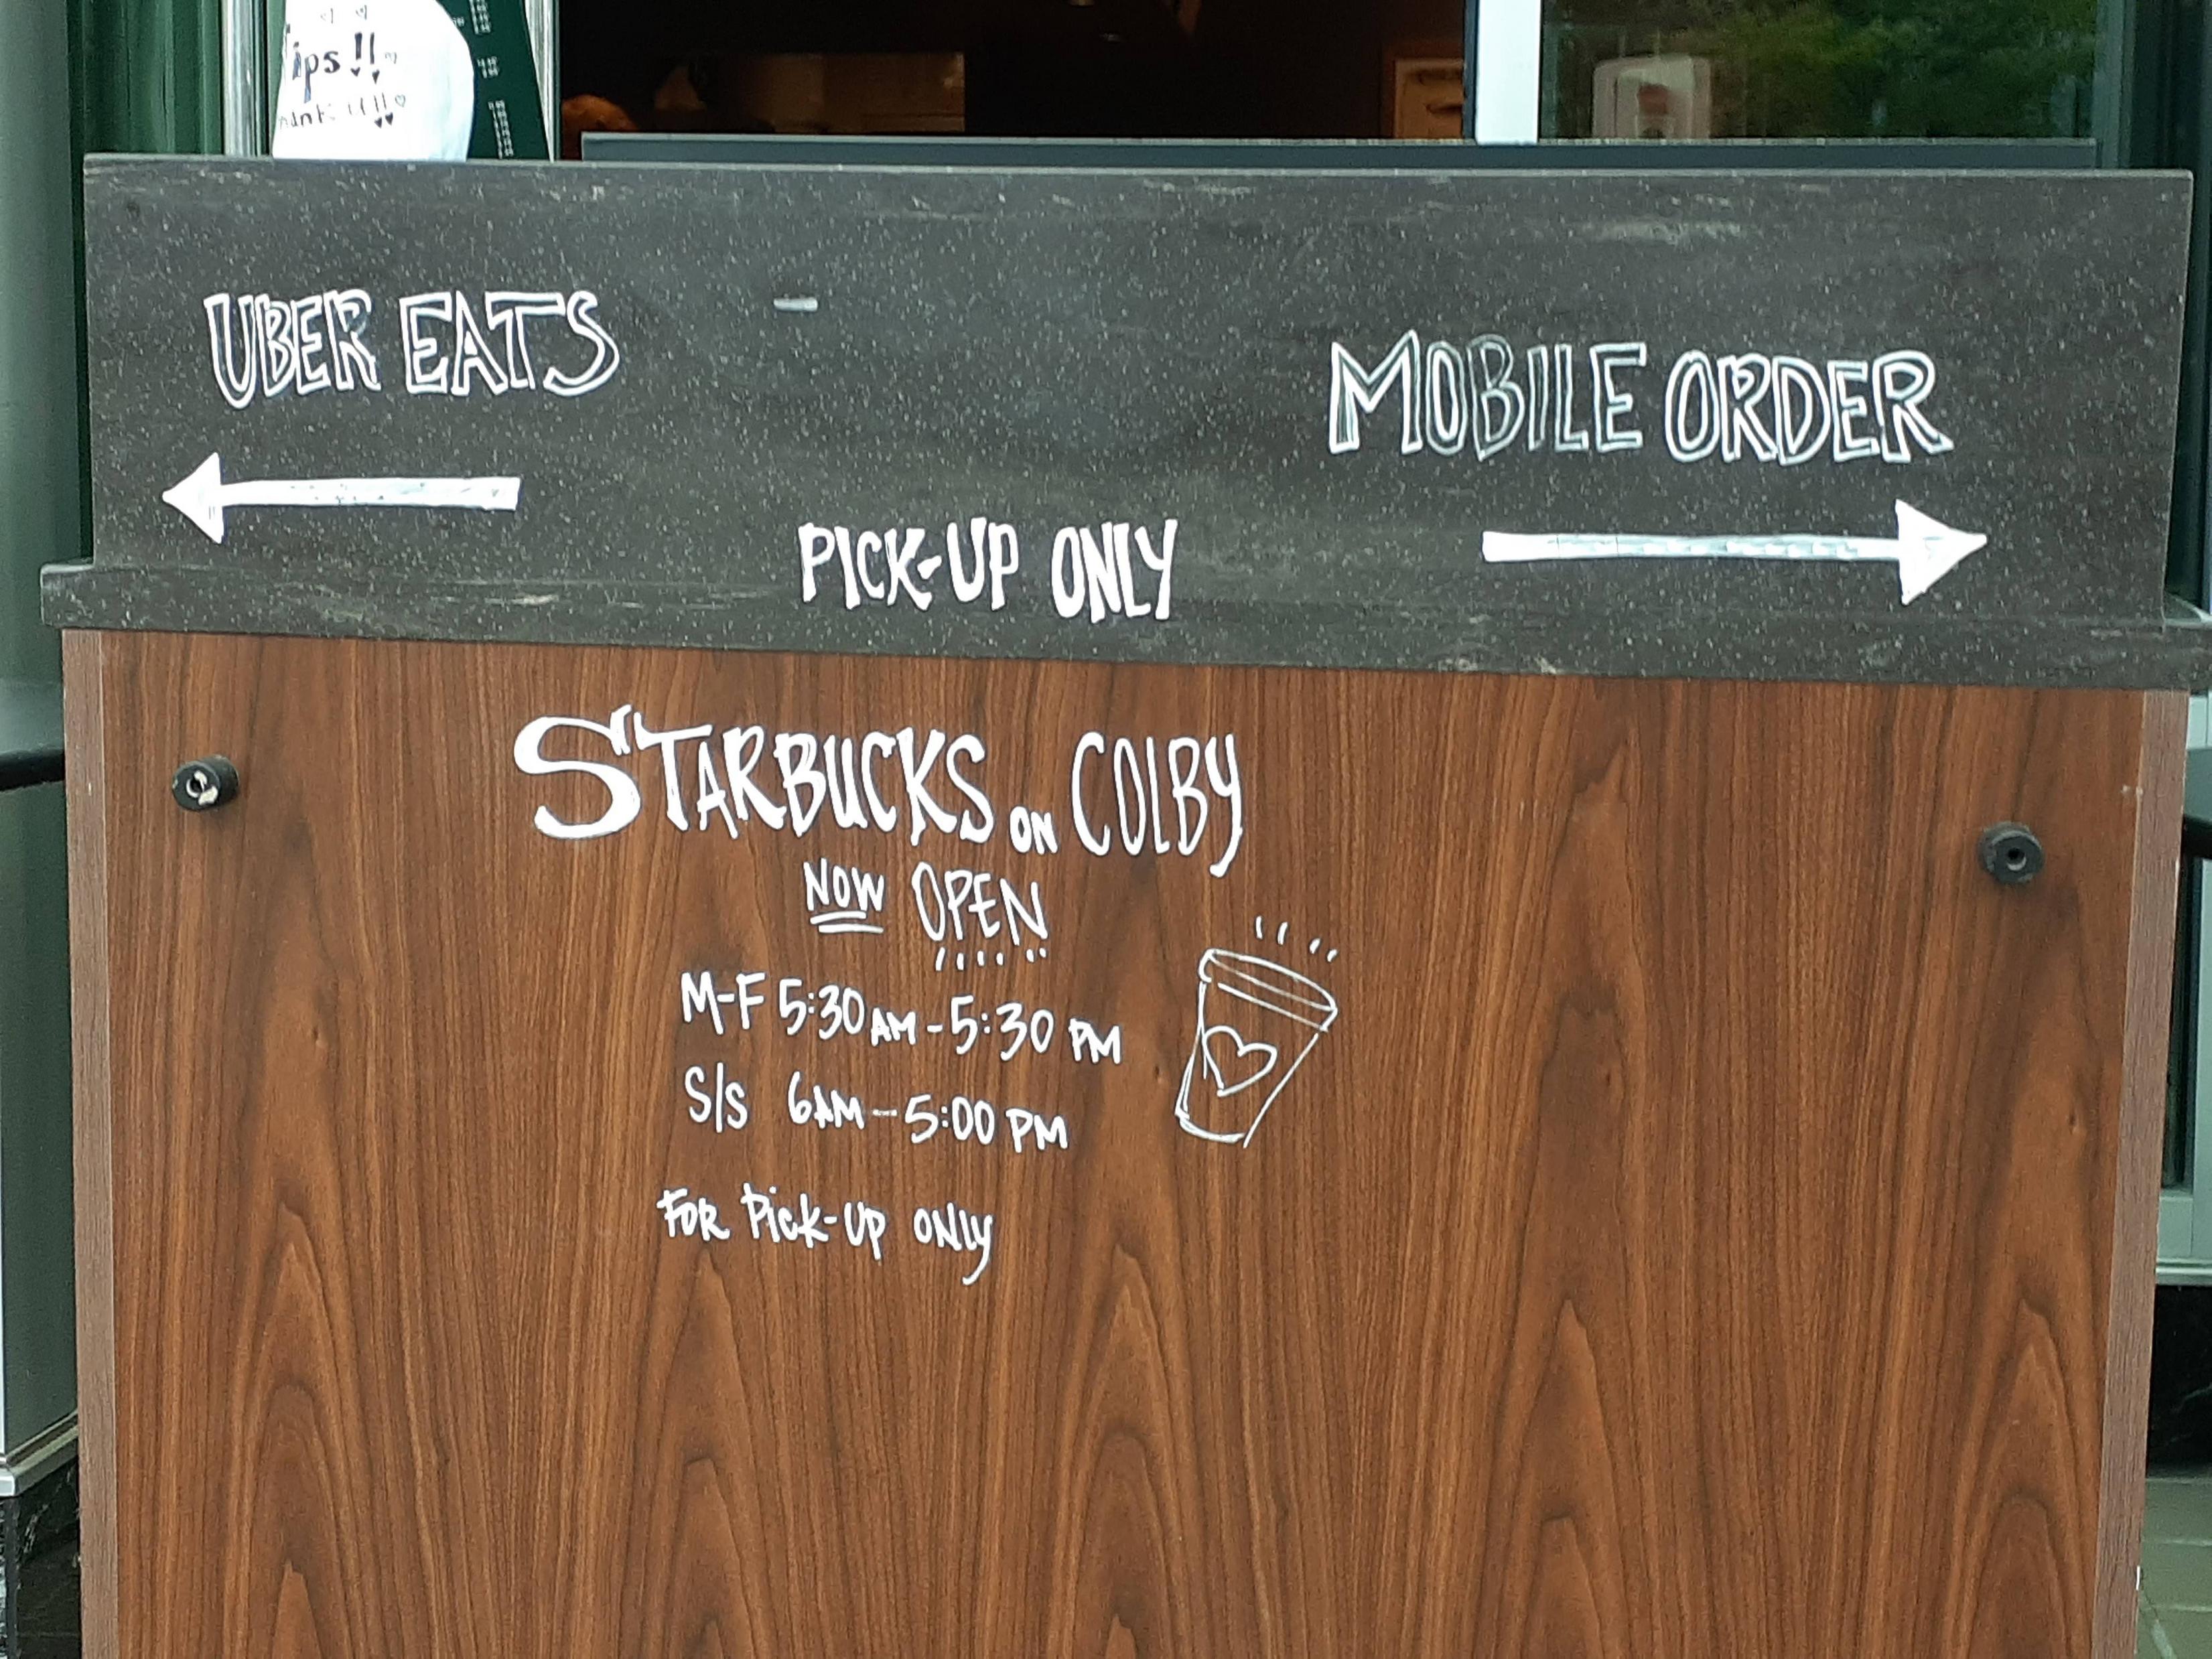 ips!!
UBER EATS
MOBILE ORDER
PICK-UP ONLY
STARBUCKS ON COLBY
NOW OPEN
M-F 5:30 AM - 5:30 PM
S/S 6AM - 5:00 PM
FOR PICK-UP ONLY